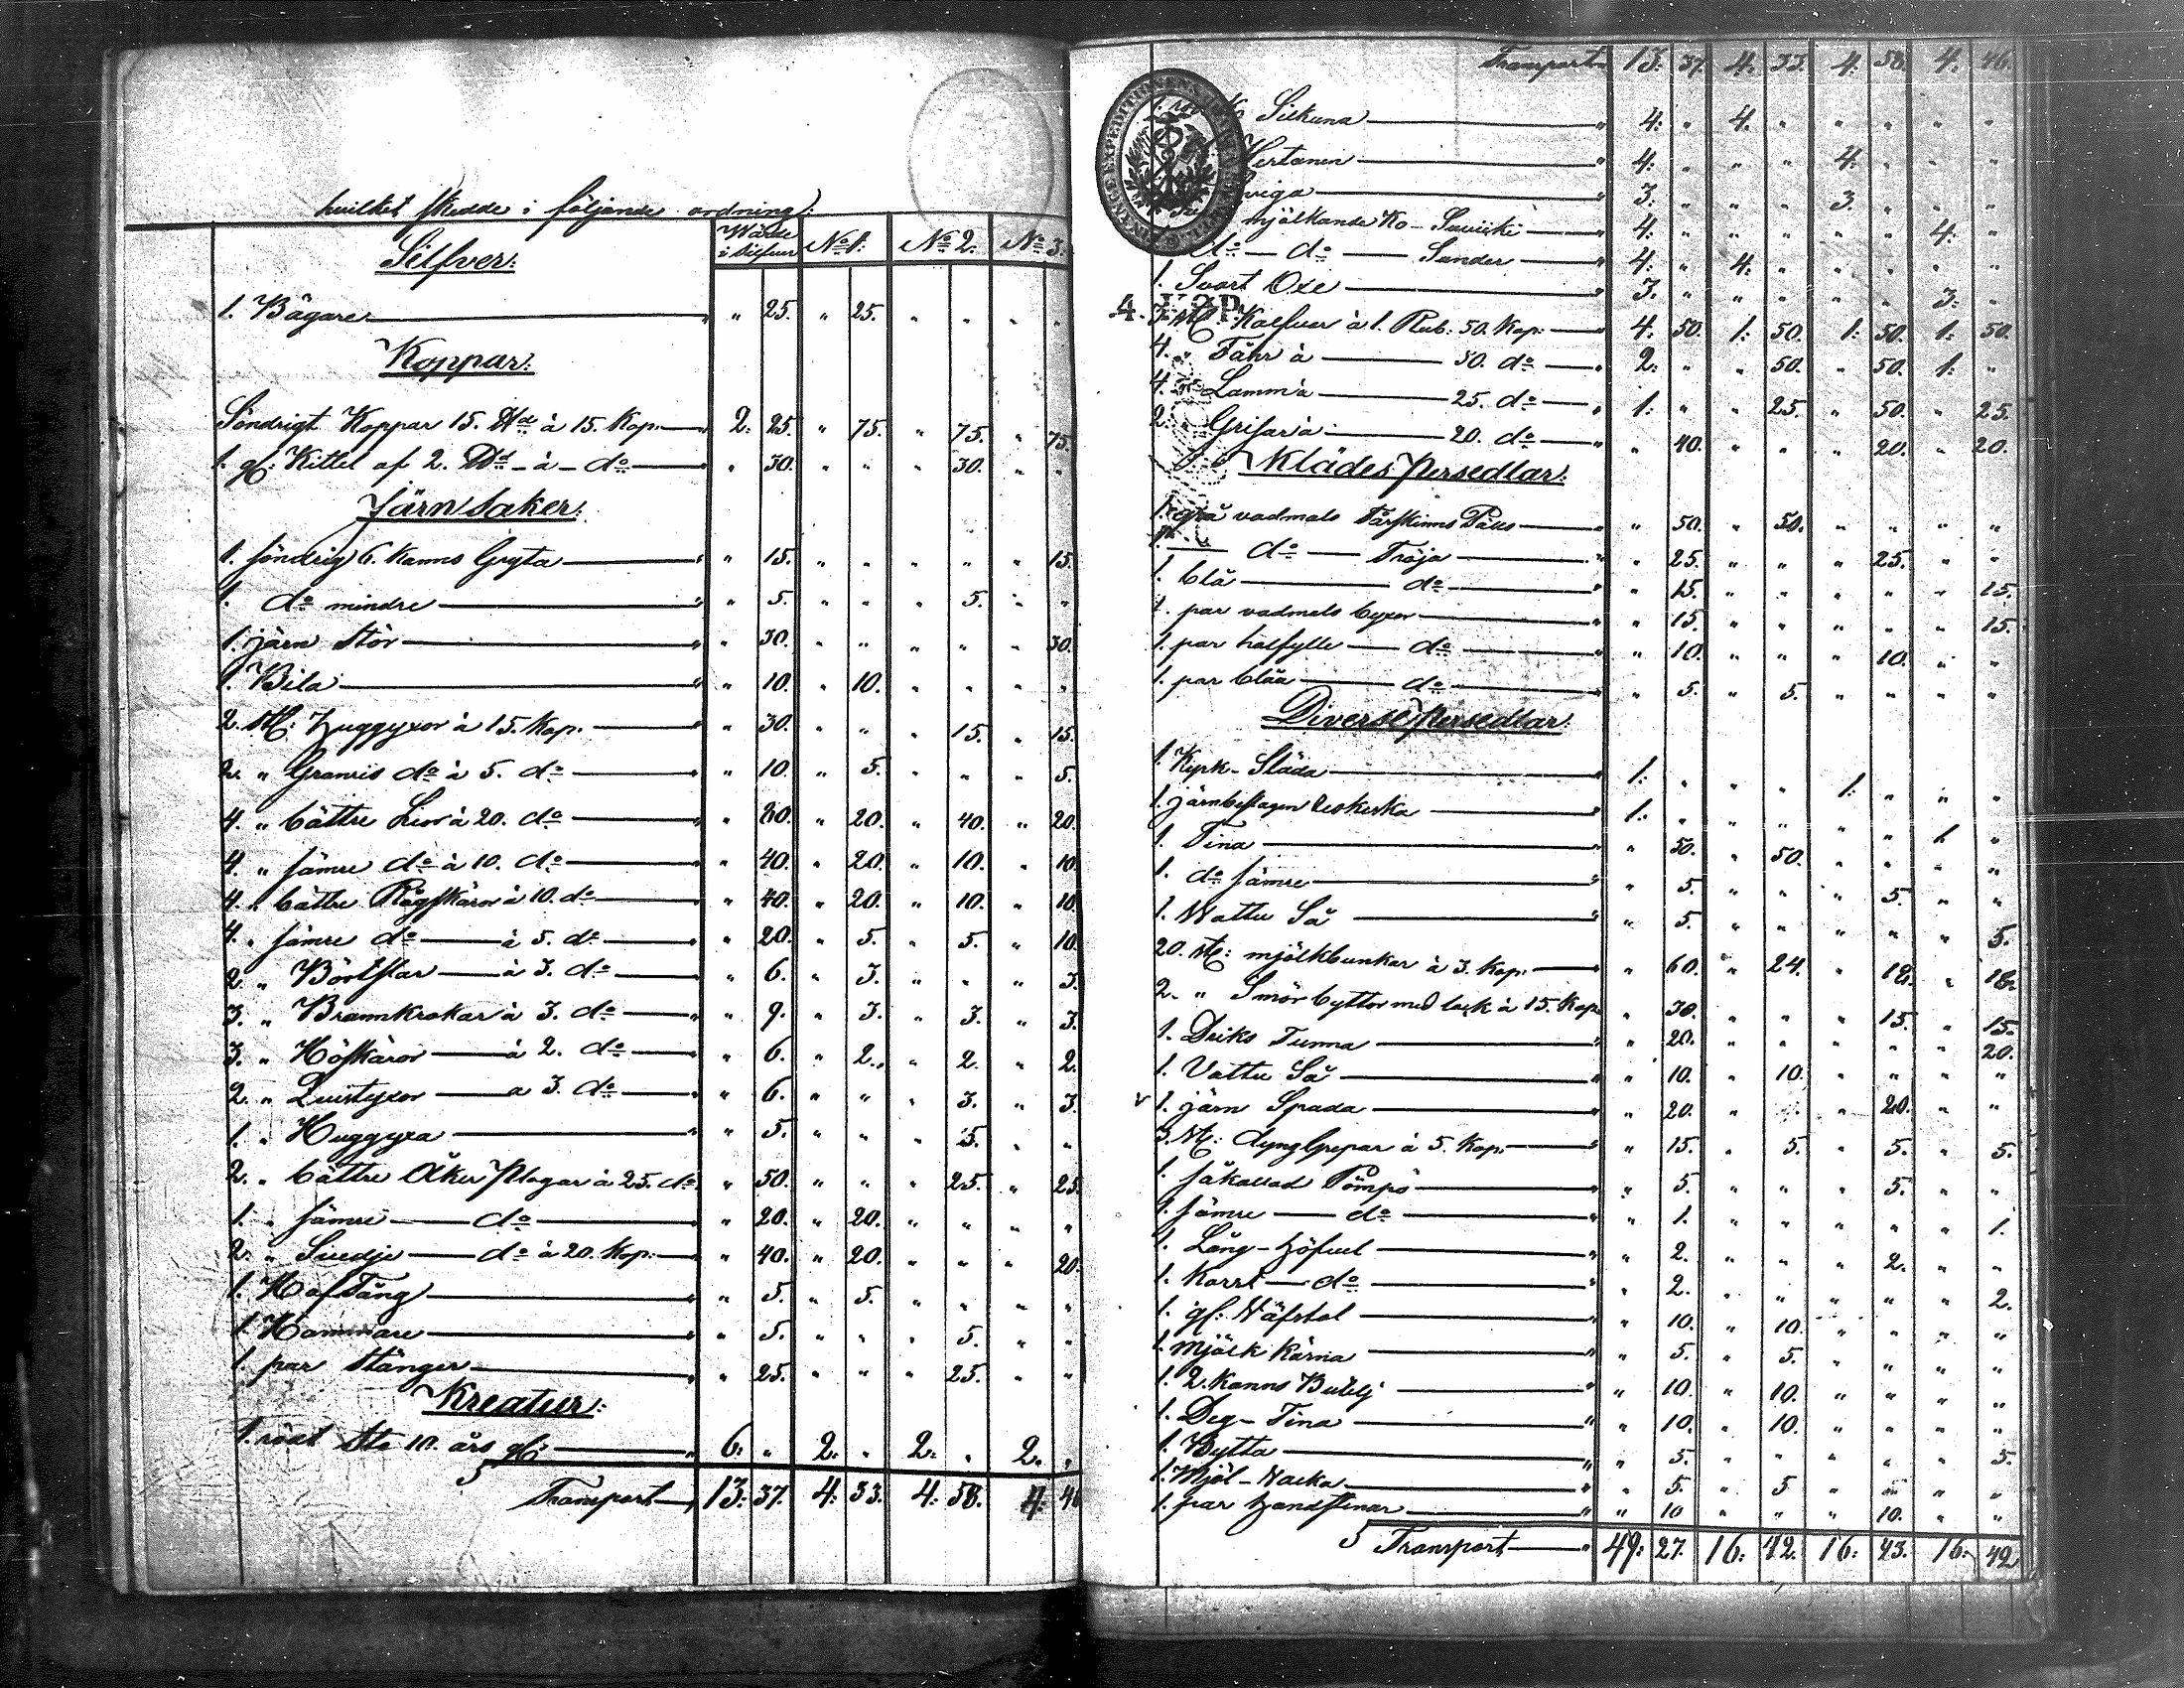 hvilket skedde i följande ordning:
Wärde i Silfver No 1. No 2. No 3.
Silfver:
1. Bägare " 25. " 25. " " " "
Koppar:
Söndrigt Koppar 15. à 15. Kop. 2: 25. " 75. " 75. " 75.
1. gl: Kittel af 2. à do " 30. " " " 30. " "
Järnsaker:
1. söndrig 6. Kanns Gryta " 15. " " " " " 15.
1. do mindre " 5. " " " 5. " "
1. järn stör " 30. " " " " " 30.
1. Bila " 10. " 10. " " " "
2. st: Huggyxor à 15. Kop. " 30. " " " 15. " 15.
2. " Granris do à 5. do " 10. " 5. " " " 5.
4. " bättre Lior à 20. do " 80. " 20. " 40. " 20.
4. " sämre do à 10. do " 40. " 20. " 10. " 10.
4. " bättre Rågskäror à 10. do " 40. " 20. " 10. " 10
4. " sämre do à 5. do " 20. " 5. " 5. " 10.
2 " à 3. do " 6. " 3. " " " 3.
3. " Brannkrokar à 3. do " 9. " 3. " 3. " 3.
3. " Höskäror à 2. do " 6. " 2. " 2. " 2.
2. " Qvistyxor a 3. do " 6. " " " 3. " 3.
1. " Huggyxa " 5. " " " 5. " "
2. " bättre Åker Plogar à 25. do " 50. " " " 25. " 25.
1. " sämre do " 20. " 20. " " " "
2. " Svedje do à 20. Kop. " 40. " 20. " " " 20.
1. HofTång " 5. " 5. " " " "
1. Hammare " 5. " " " 5. " "
1. par stänger " 25. " " " 25. " "
Kreatur:
1. rödt Sto 10. års gl: 6: " 2: " 2: " 2: "
Transport 13: 37. 4: 33. 4: 58. 4: 46
Transport 13: 37. 4: 33. 4: 58. 4: 46.
Silkuna 4: " 4: " " " " "
Hertanen 4: " " " 4: " " "
3: " " " 3. " " "
mjölkande Ko 4: " " " " " 4: "
do do Sunder 4: " 4: " " " " "
1. Svart Oxe 3. " " " " " 3: "
3 st: Kalfvar à 1. Rub: 50. Kop: 4: 50. 1: 50. 1: 50. 1: 50.
4. " Fåhr à 50. do 2: " " 50. " 50. 1: "
4. " Lamm à 25. do 1: " " 25. " 50. " 25.
2. Grisar à 20. do " 40. " " " 20. " 20.
Klädes Persedlar:
1. grå vadmals Fårskinns Päls " 50. " 50. " " " "
do Tröja " 25. " " " 25. " "
1. blå do " 15. " " " " " 15.
1. par vadmals byxor " 15. " " " " " 15.
1. par halfylle do " 10. " " " 10. " "
1. par blåa do " 5. " 5. " " " "
Diverse Persedlar:
1. Kyrk-Släda 1: " " " 1: " " "
1. järnbeslagen 1: " " " " " 1. "
1. Tina " 50. " 50. " " " "
1. do sämre " 5. " " " 5. " "
1. Vattu Så " 5. " " " " " 5.
20. st: mjölkbunkar à 3. Kop. " 60. " 24. " 18. " 18.
2. " Smör byttor med lock à 15. Kop. " 30. " " " 15. " 15.
1. Driks Tunna " 20. " " " " " 20.
1. Vattu Så " 10. " 10. " " " "
1. järn Spada " 20. " " " 20. " "
3. st: dyng Grepar à 5. Kop. " 15. " 5. " 5. " 5.
1. såkallad Pömpö " 5. " " " 5. " "
1. sämre do " 1. " " " " " 1.
1. Lång-Höfvel " 2. " " " 2. " "
1. Kort do " 2. " " " " " 2.
1. gl: Väfstol " 10. " 10. " " " "
1. Mjölk Kärna " 5. " 5. " " " "
1. 2. Kanns Butelj " 10. " 10. " " " "
1. Deg-Tina " 10. " 10. " " " "
1. Bytta " 5. " " " " " 5.
1. Mjöl-Vacka " 5. " 5 " " " "
1. par Handstenar " 10 " " " 10. " "
Transport 49: 27. 16: 42. 16: 43. 16: 42